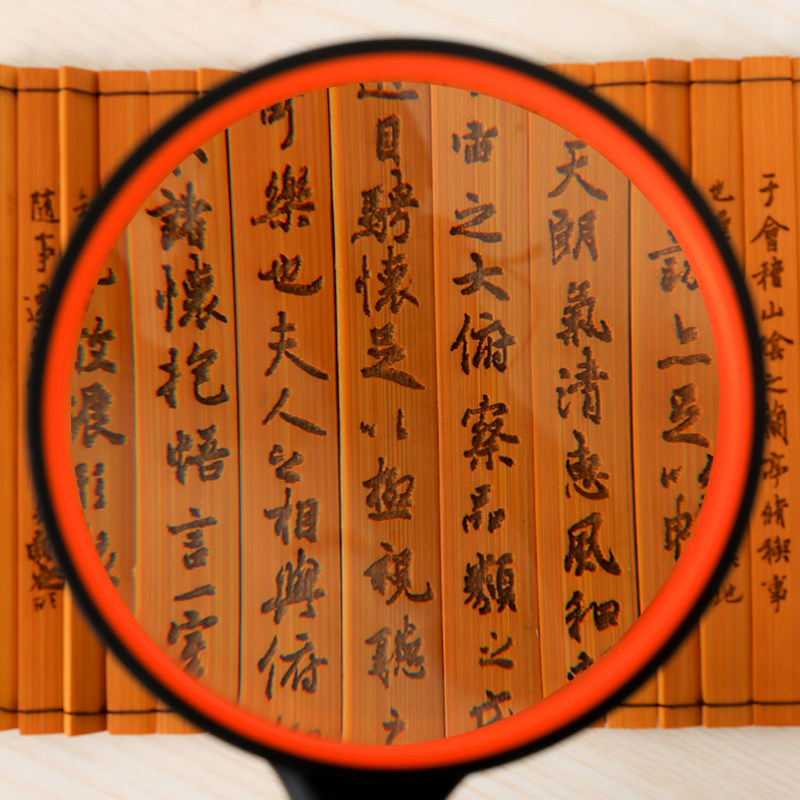 于會稽山陰之蘭亭脩稧事
也
詠亦足以暢
天朗氣清惠風和
宙之大俯察品類之盛
目騁懷足以極視聽之
可樂也夫人之相與俯
諸懷抱悟言一室
放浪形骸
隨事遷